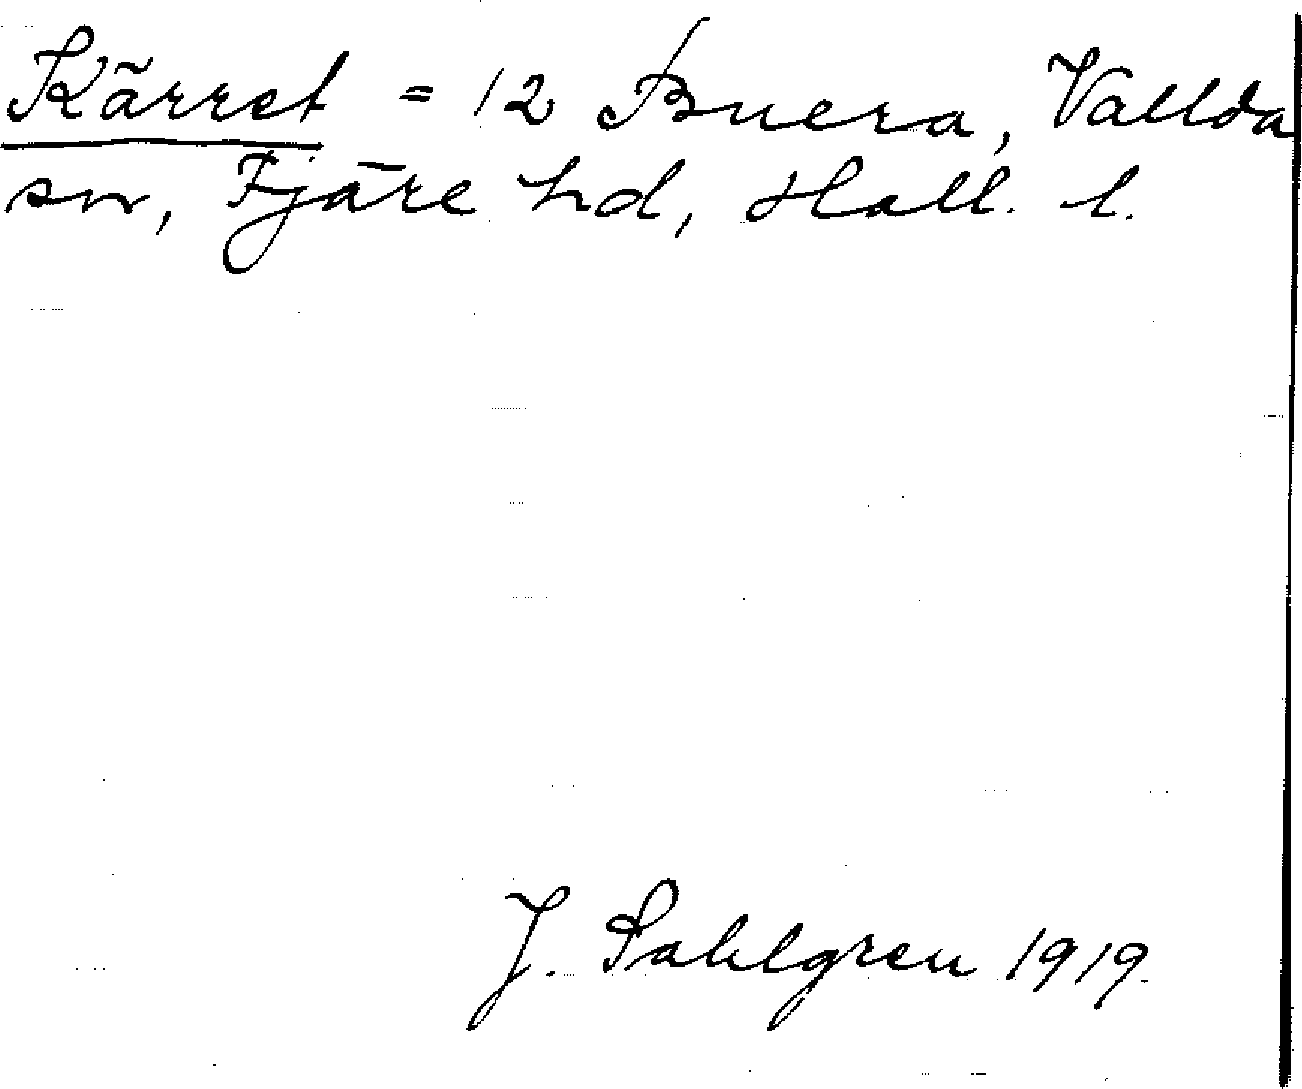 Kärret = 12 Buera, Vallda
sn, Fjäre hd, Hall. l.
J. Sahlgren 1919.